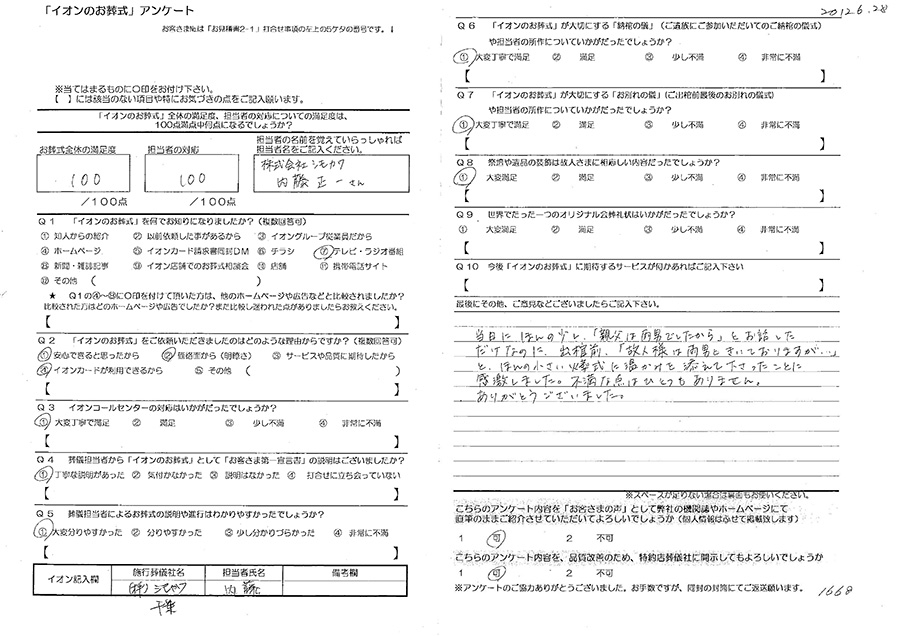 「イオンのお葬式」アンケート
お客さま№は「お見積書2-1」打合せ事項の左上の5ケタの番号です。
※当てはまるものに○印をお付け下さい。
【 】には該当のない項目や特にお気づきの点をご記入願います。
「イオンのお葬式」全体の満足度、担当者の対応についての満足度は、
100点満点中何点になるでしょうか？
お葬式全体の満足度
担当者の対応
担当者の名前を覚えていらっしゃれば
担当者名をご記入ください。
100
100
株式会社シモカワ
内藤正一さん
/100点
/100点
Q1 「イオンのお葬式」を何でお知りになりましたか？（複数回答可）
① 知人からの紹介 ② 以前依頼した事があるから ③ イオングループ従業員だから
④ ホームページ ⑤ イオンカード請求書同封DM ⑥ チラシ ⑦ テレビ・ラジオ番組
⑧ 新聞・雑誌記事 ⑨ イオン店舗でのお葬式相談会 ⑩ 店舗 ⑪ 携帯電話サイト
⑫ その他 （ ）
★ Q1の④～⑬に○印を付けて頂いた方は、他のホームページや広告などと比較されましたか？
比較された方はどのホームページや広告でしたか？また比較し迷われた点がありましたらお答えください。
【 】
Q2 「イオンのお葬式」をご依頼いただきましたのはどのような理由からですか？（複数回答可）
① 安心できると思ったから ② 価格面から（明瞭さ） ③ サービスや品質に期待したから
④ イオンカードが利用できるから ⑤ その他 （ ）
【 】
Q3 イオンコールセンターの対応はいかがだったでしょうか？
① 大変丁寧で満足 ② 満足 ③ 少し不満 ④ 非常に不満
【 】
Q4 葬儀担当者から「イオンのお葬式」として「お客さま第一宣言書」の説明はございましたか？
① 丁寧な説明があった ② 気付かなかった ③ 説明はなかった ④ 打合せに立ち会っていない
【 】
Q5 葬儀担当者によるお葬式の説明や進行はわかりやすかったでしょうか？
① 大変分りやすかった ② 分りやすかった ③ 少し分かりづらかった ④ 非常に不満
【 】
イオン記入欄 施行葬儀社名 担当者氏名 備考欄
(株)シモカワ 内藤
千葉
2012.6.28
Q6 「イオンのお葬式」が大切にする「納棺の儀」（ご遺族にご参加いただいてのご納棺の儀式）
や担当者の所作についていかがだったでしょうか？
① 大変丁寧で満足 ② 満足 ③ 少し不満 ④ 非常に不満
【 】
Q7 「イオンのお葬式」が大切にする「お別れの儀」（ご出棺前最後のお別れの儀式）
や担当者の所作についていかがだったでしょうか？
① 大変丁寧で満足 ② 満足 ③ 少し不満 ④ 非常に不満
【 】
Q8 祭壇や遺品の装飾は故人さまに相応しい内容だったでしょうか？
① 大変満足 ② 満足 ③ 少し不満 ④ 非常に不満
【 】
Q9 世界でたった一つのオリジナル会葬礼状はいかがだったでしょうか？
① 大変満足 ② 満足 ③ 少し不満 ④ 非常に不満
【 】
Q10 今後「イオンのお葬式」に期待するサービスが何かあればご記入下さい
【 】
最後にその他、ご意見などございましたらご記入下さい。
当日にほんの少し、「親父は雨男でしたから」とお話した
だけなのに、出棺前、「故人様は雨男ときいておりますが…」
と、ほんの小さい葬式に温かみを添えて下さったことに
感激しました。不満な点はひとつもありません。
ありがとうございました。
※スペースが足りない場合は裏面もお使いください。
こちらのアンケート内容を「お客さまの声」として弊社の機関誌やホームページにて
直筆のままご紹介させていただいてよろしいでしょうか（個人情報はふせて掲載致します）
1 可 2 不可
こちらのアンケート内容を、品質改善のため、特約店葬儀社に開示してもよろしいでしょうか
1 可 2 不可
※アンケートのご協力ありがとうございました。お手数ですが、同封の封筒にてご返送願います。
1668